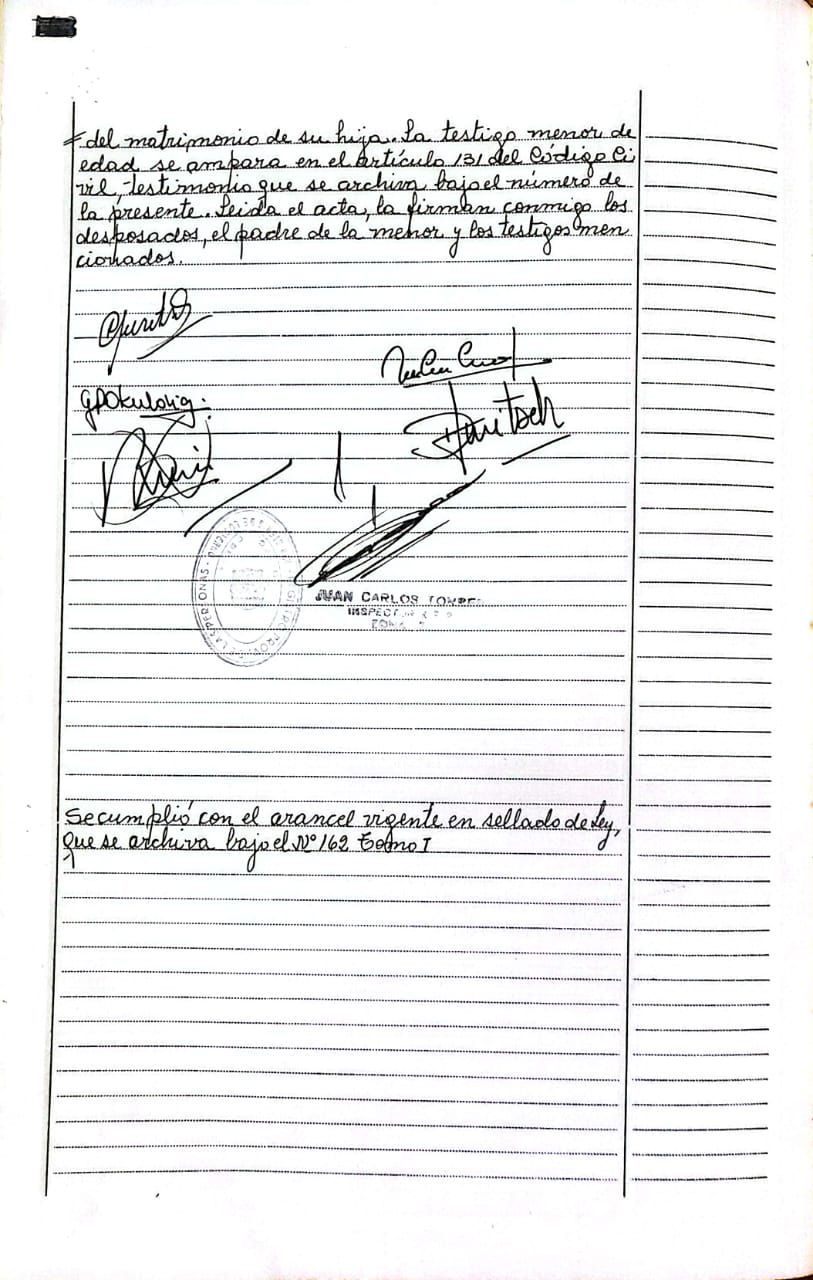 del matrimonio de su hija. La testigo menor de
edad se ampara en el artículo 131 del Código Ci
vil, testimonio que se archiva bajo el número de
la presente. Leida el acta, la firman conmigo los
desposados, el padre de la menor y los testigos men
cionados.
JUAN CARLOS TORRES
Se cumplió con el arancel vigente en sellado de Ley,
que se archiva bajo el Nº 162 Tomo I